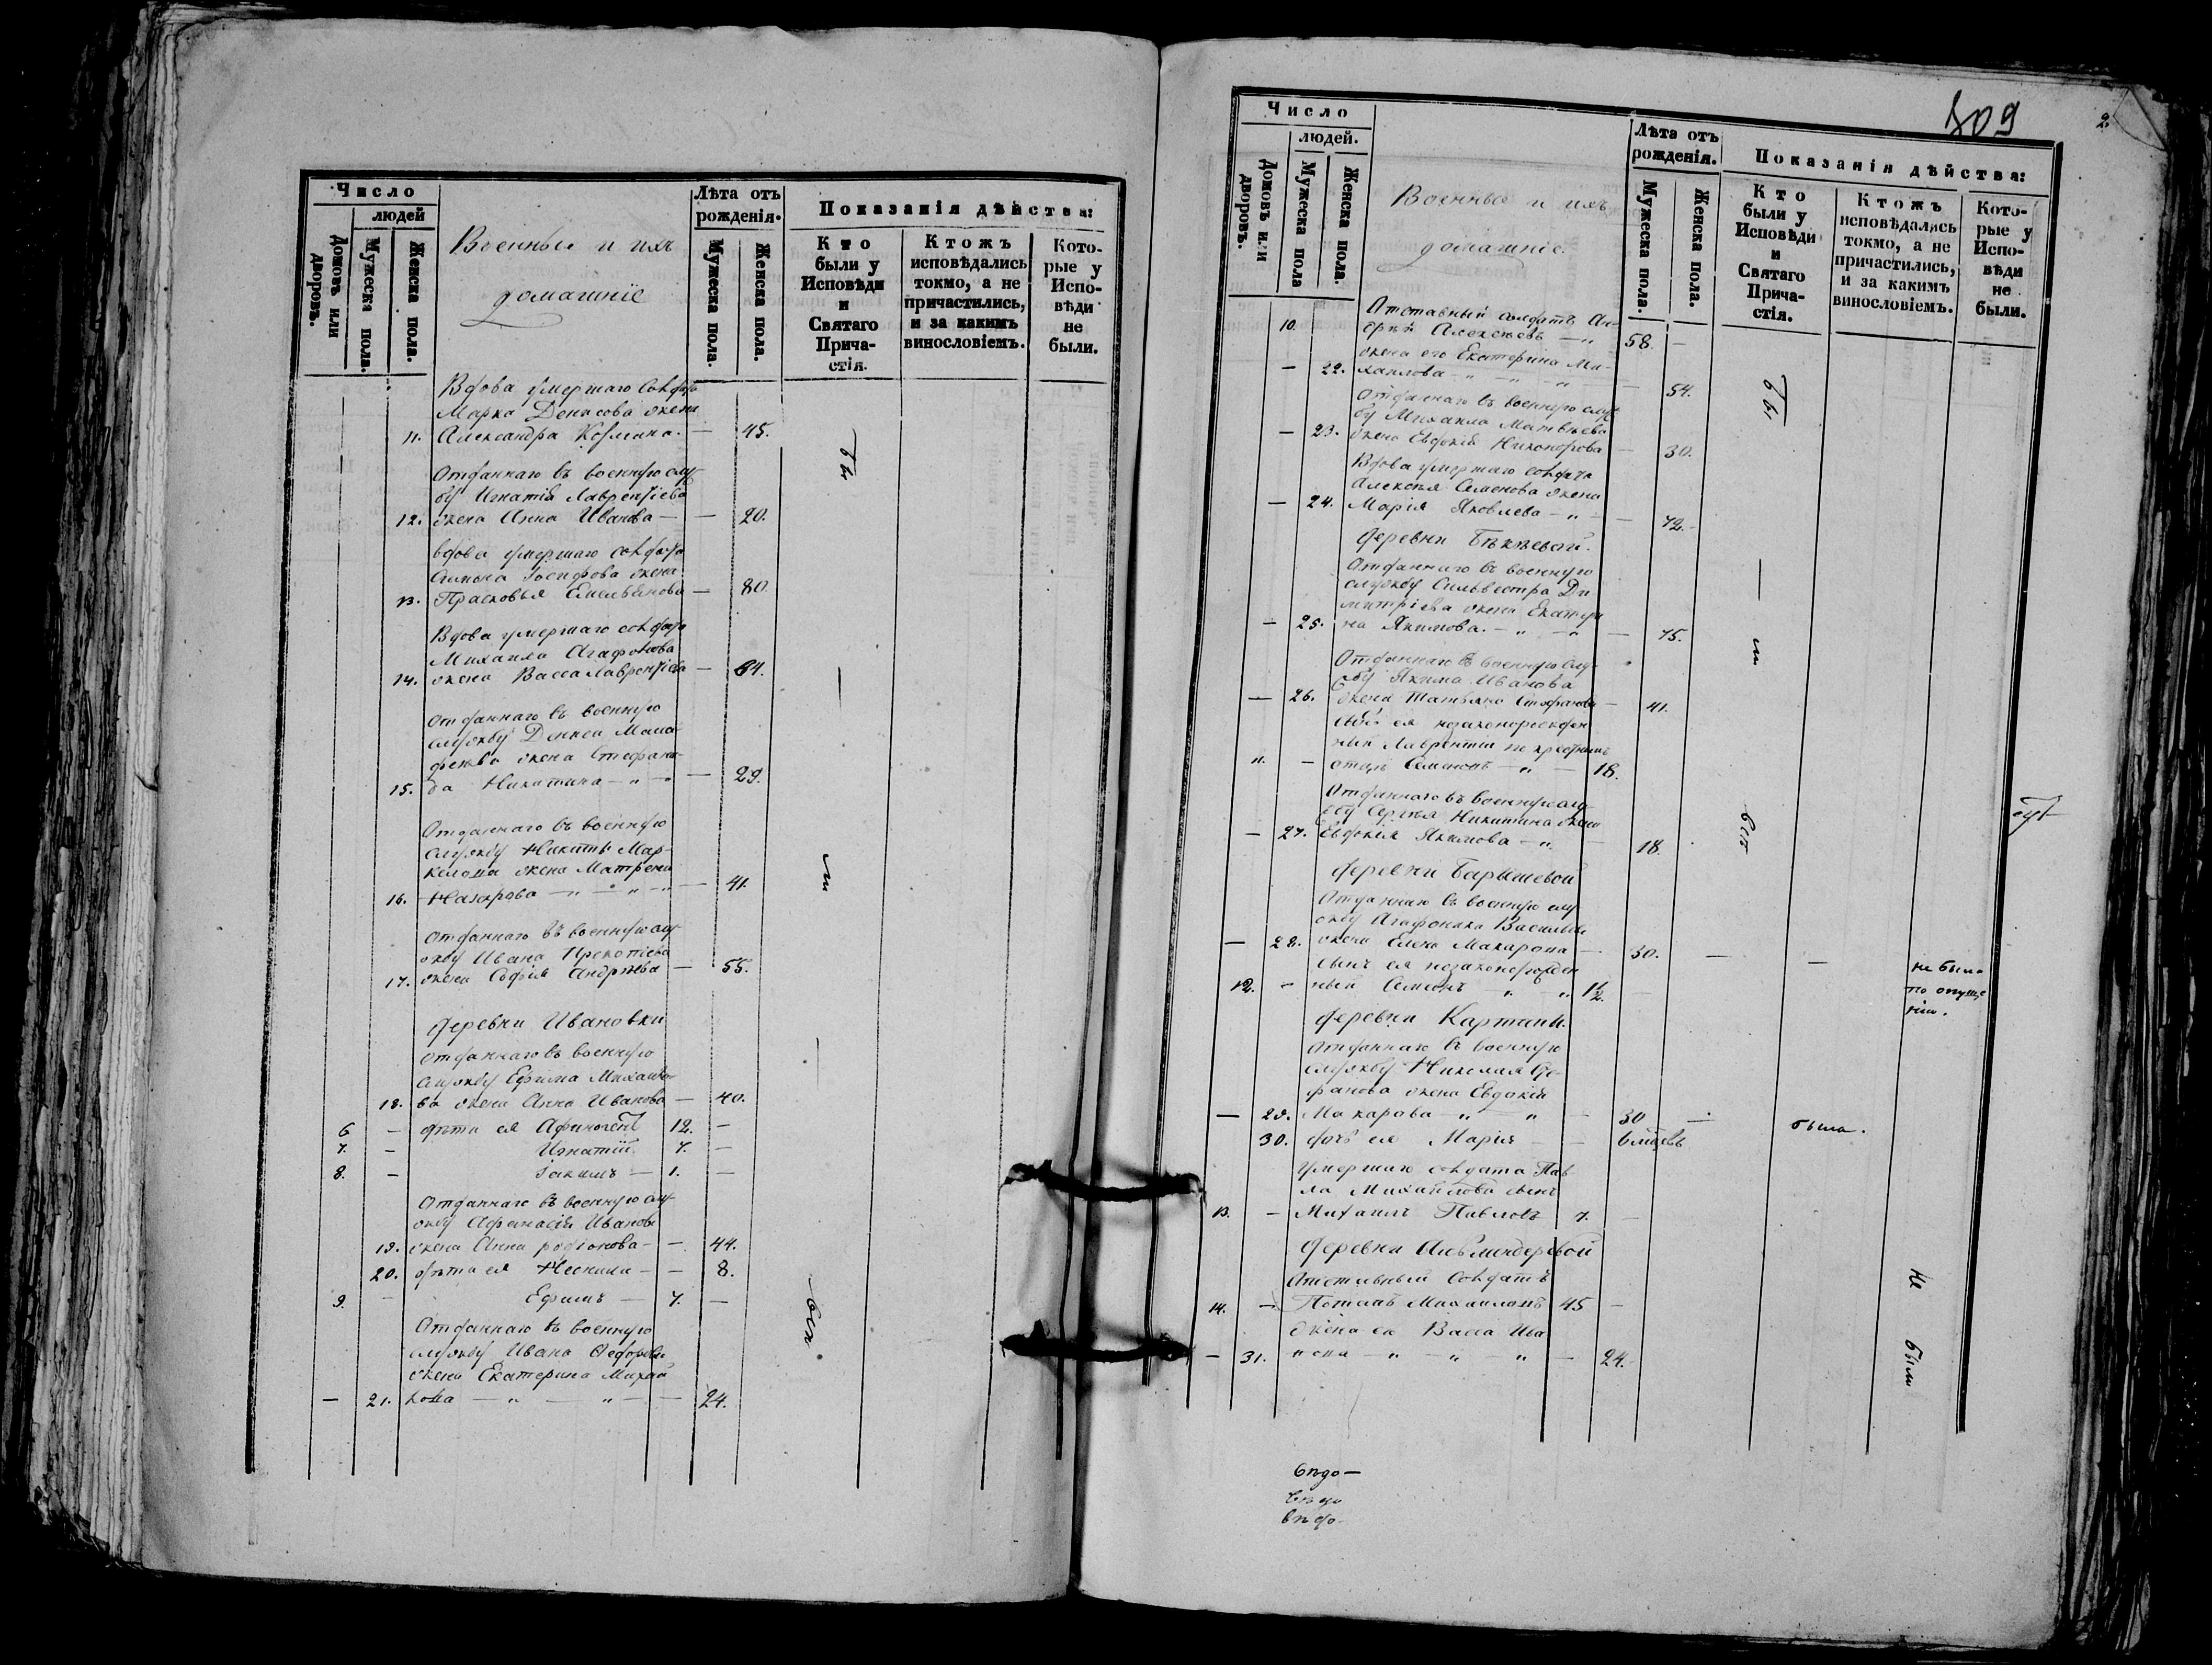 Число
людей
Домовъ или дворовъ.
Мужеска пола.
Женска пола.
Военные и ихъ
домашніе
Лѣта отъ рожденія.
Мужеска пола.
Женска пола.
Показанія дѣйства:
Кто были у Исповѣди и Святаго Прича-стія.
Ктожъ исповѣдались токмо, а не причастились, и за какимъ винословіемъ.
Кото-рые у Испо-вѣди не были.
Вдова умершаго солдата
Марка Денисова жена
11. Александра Козмина. — 45.
Отданнаго въ военную слу-
жбу Игнатія Лаврентіева
12. жена Анна Иванова — — 20.
вдова умершаго солдата
Симона Іосифова жена
13. Прасковья Емельянова — 80.
Вдова умершаго солдата
Михаила Агафонова
14. жена Васса Лаврентіева — 64.
Отданнаго въ военную
службу
жена Стефани-
15. да Никитина — " — — 29.
Отданнаго въ военную
службу Никиты Мар-
келова жена Матрена
16. Назарова — " — " — " — 41.
Отданнаго въ военную слу-
жбу Ивана Прокопіева
17. жена Софія Андреева — 55.
деревни Ивановки
Отданнаго въ военную
службу Ефима Михайло-
18. ва жена Анна Иванова — 40.
6 — дѣти ея Афиногенъ 12. —
7. — Игнатій 7. —
8. — Іакимъ — 1. —
Отданнаго въ военную слу-
жбу Афанасія Иванова
19. жена Анна родіонова — — 44.
20. дѣти ея Неонила — — 8.
9. — Ефимъ — 7. —
Отданнаго въ военную
службу Ивана Федорова
жена Екатерина Михай
— 21. лова — " — " — — 24.
бы
—
ли
—
вси.
309
2.
Число
людей.
Домовъ или дворовъ.
Мужеска пола
Женска пола.
Военные и ихъ
домашніе.
Лѣта отъ рожденія.
Мужеска пола.
Женска пола.
Показанія дѣйства:
Кто были у Исповѣди и Святаго Прича-стія.
Ктожъ исповѣдались токмо, а не причастились, и за какимъ винословіемъ.
Кото-рые у Испо-вѣди не были.
Отставный солдатъ Ан-
10. дрей Алексѣевъ — " 58. —
жена его Екатерина Ми-
— 22. хаилова — " — " — " — 54.
Отданнаго въ военную служ
бу Михаила Матвѣева
— 23. жена Евдокія Никонорова — 30.
Вдова умершаго солдата
Алексѣя Семенова жена
— 24. Марія Яковлева — " — — 72.
деревни Бѣкѣевой.
Отданнаго въ военную
службу Сильвестра Ди
митріева жена Екатери
— 25. на Якимова. — " — " — 75.
Отданнаго въ военную слу-
жбу Якима Иванова
— 26. жена Татьяна Стефанова — 41.
сынъ ея незаконорожден
ный Лаврентій по крестному
11. — отцу Семеновъ — " — 18.
Отданнаго въ военную слу
жбу Сергѣя Никитина жена
— 27. Евдокія Якимова — " — 18.
деревни Барышевой
Отданнаго въ военную слу
жбу Агафоника Васильева
— 28. жена Елена Макарова — 30. —
сынъ ея незаконорожден
12. — ный Семенъ " — " 1½. —
деревни Картапы.
Отданнаго въ военную
службу Николая
жена Евдокія
— 29. Макарова — " — " — 30 —
30. дочь ея Марія — — 6 мѣсяцевъ
умершаго солдата Пав
ла Михайлова сынъ
13. — Михаилъ Павловъ 7. —
Отставный Солдатъ
14. — Потапъ Михаиловъ 45 —
жена ея Васса Ива
— 31. нова — " — " — " — 24.
бы
—
ли
вси
—
не была
по опуще
нію.
была.
не были